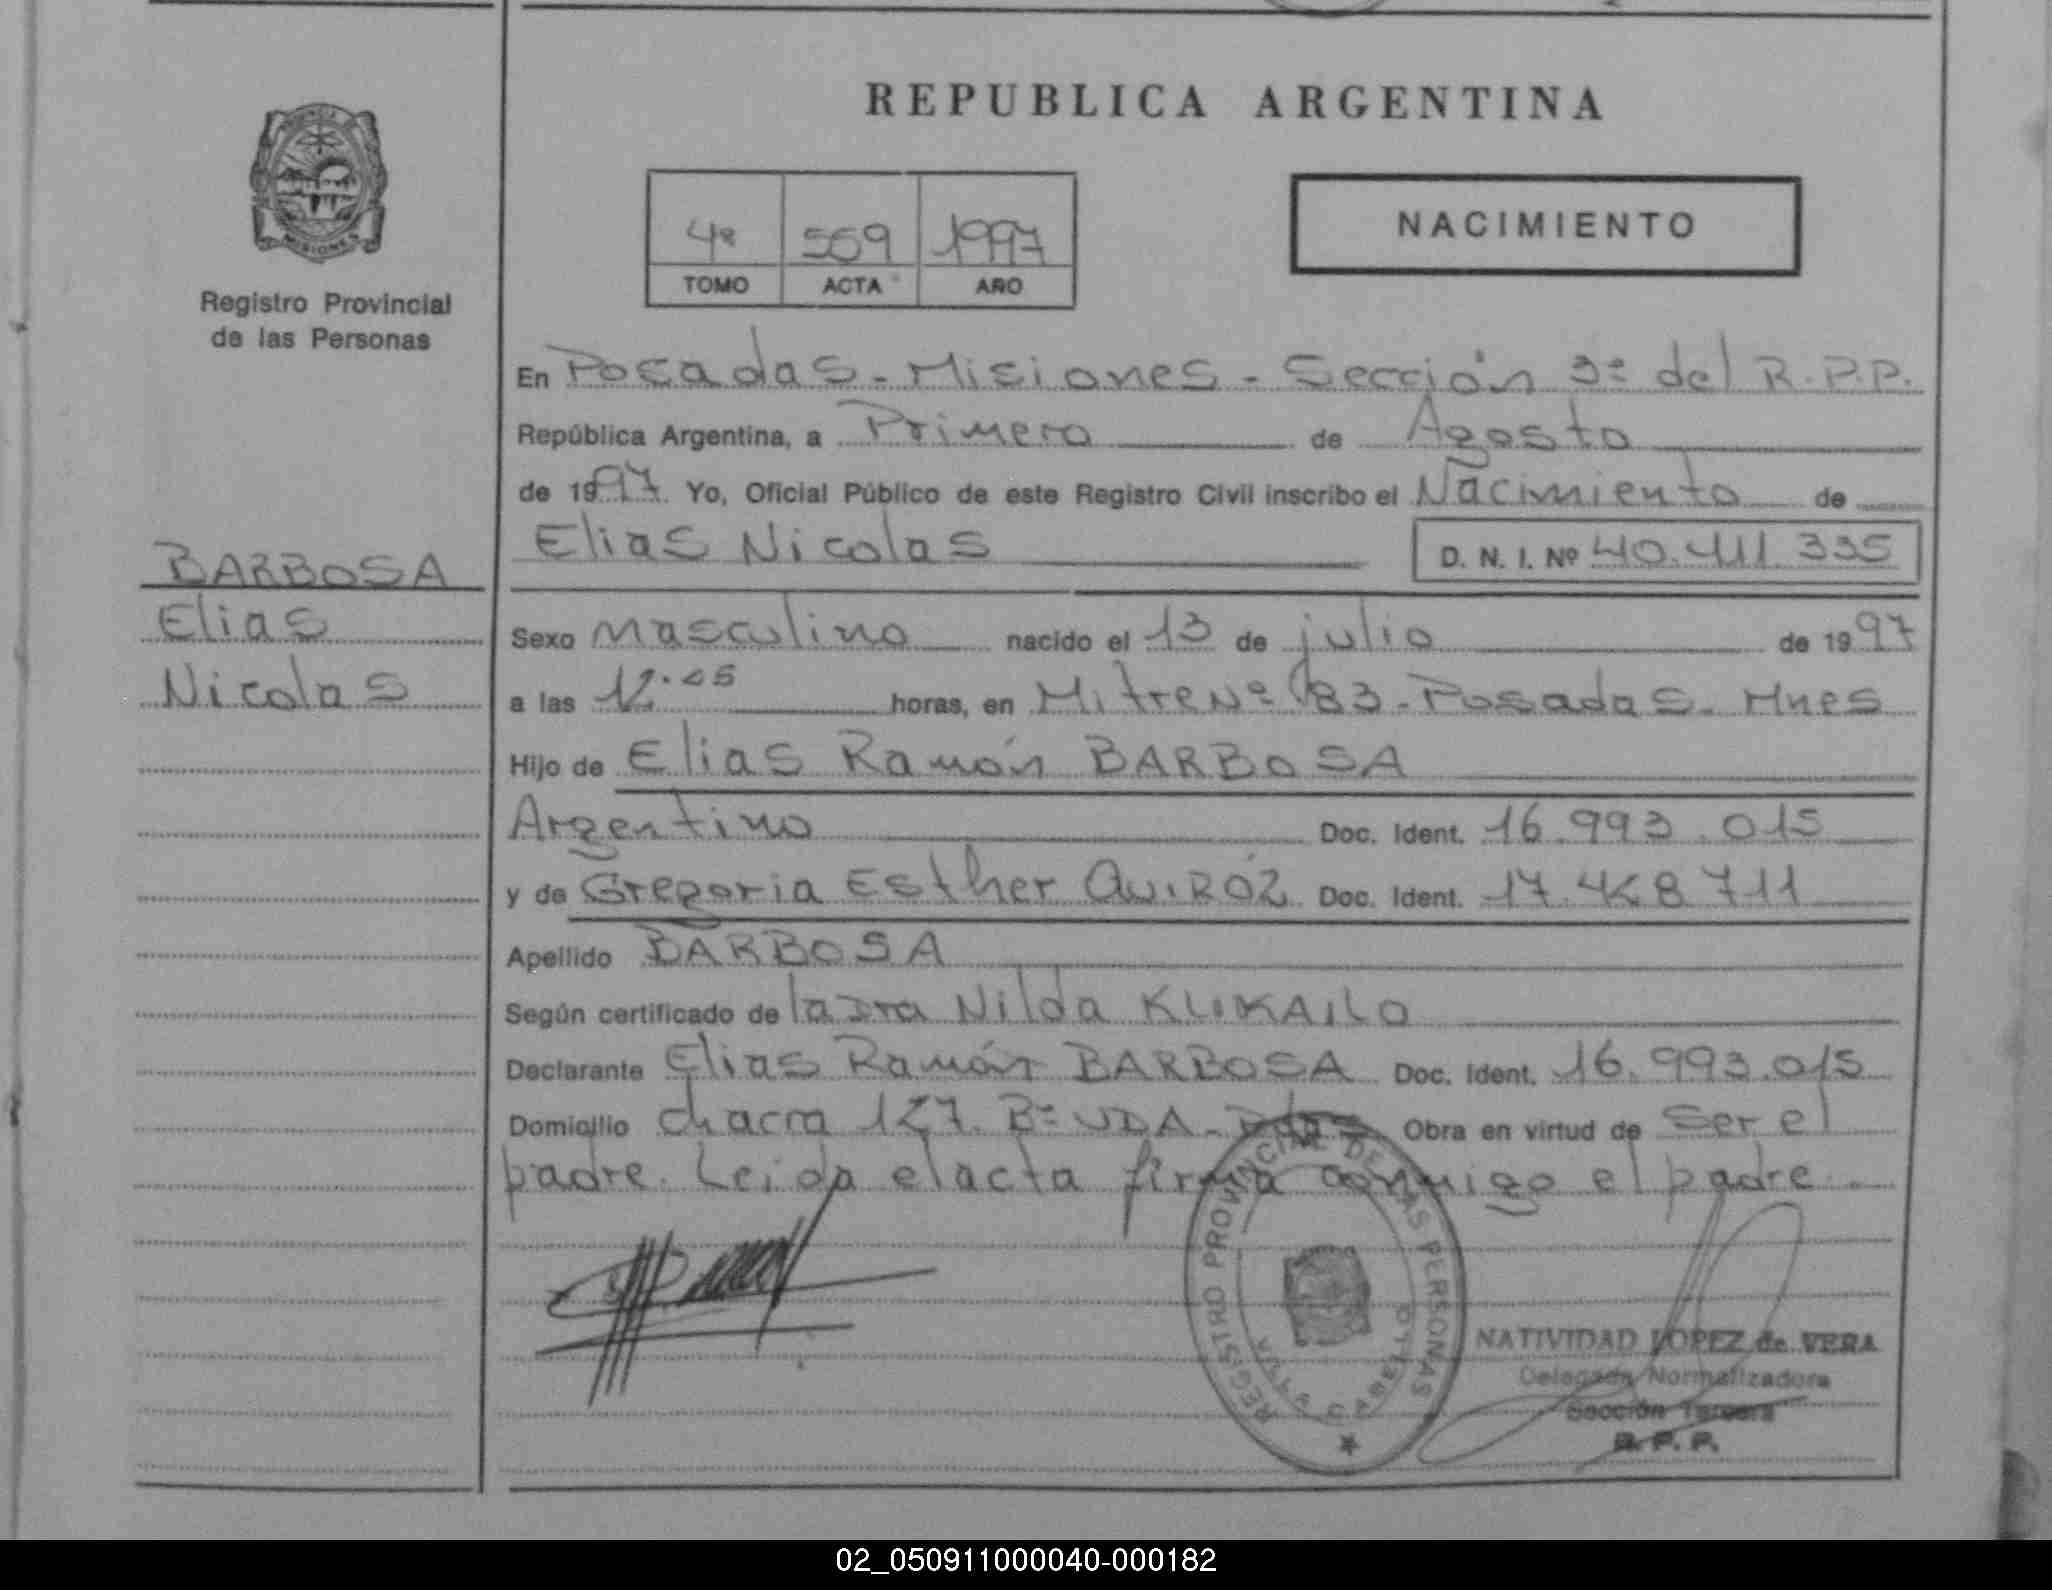 REPUBLICA ARGENTINA
MISIONES
Registro Provincial
de las Personas
4º 559 1997
TOMO ACTA AÑO
NACIMIENTO
En Posadas - Misiones - Sección 3º del R.P.P.
República Argentina, a Primero de Agosto
de 1997 Yo, Oficial Público de este Registro Civil inscribo el Nacimiento de
Elias Nicolas D. N. I. Nº 40.411.335
BARBOSA
Elias
Nicolas
Sexo masculino nacido el 13 de julio de 1997
a las 12.05 horas, en Mitre Nº 183 - Posadas - Mnes
Hijo de Elias Ramón BARBOSA
Argentino Doc. Ident. 16.993.015
y de Gregoria Esther QUIRÓZ Doc. Ident. 17.468711
Apellido BARBOSA
Según certificado de la Dra Nilda KLUKAILO
Declarante Elias Ramón BARBOSA Doc. Ident. 16.993.015
Domicilio chacra 127 Bº UDA - Pdas Obra en virtud de ser el
padre. Leida el acta firma conmigo el padre.
REGISTRO PROVINCIAL DE LAS PERSONAS
NATIVIDAD LOPEZ de VERA
Delegada Normalizadora
Sección Tercera
R. P. P.
02_050911000040-000182